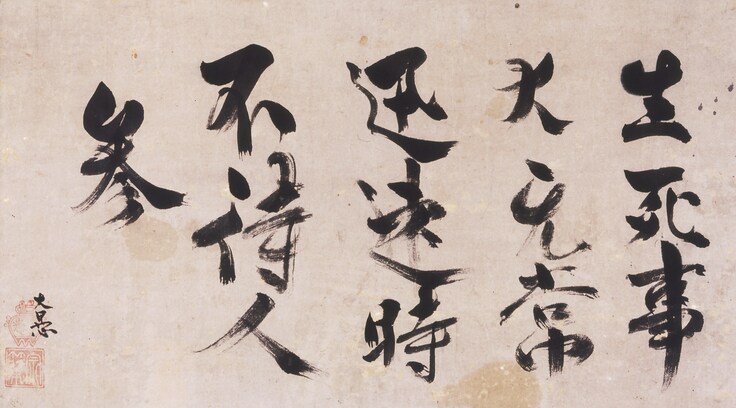 生死事
大无常
迅速時
不待人
参
大愚